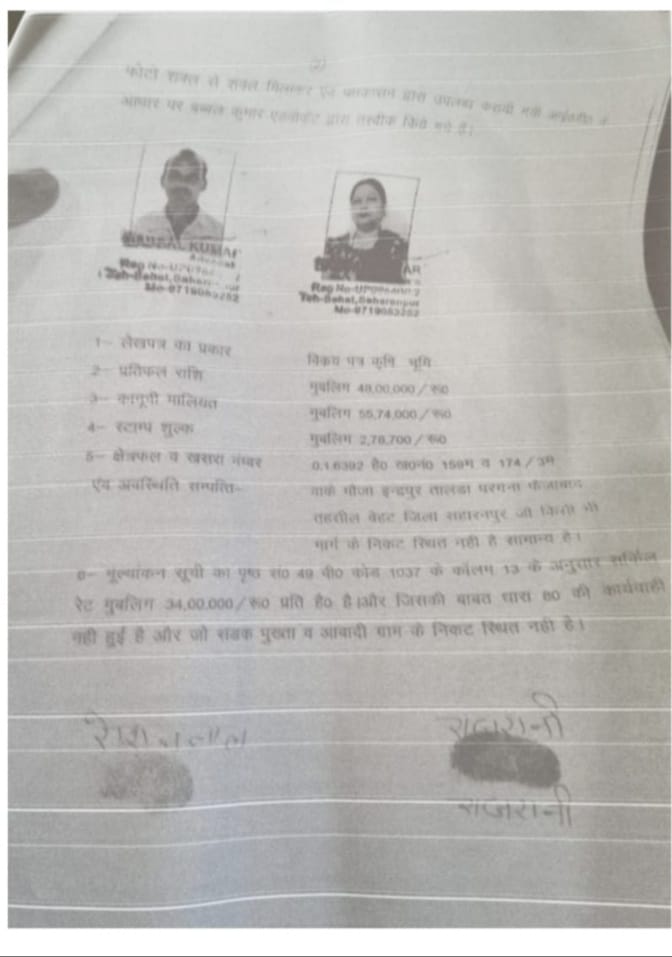 (2)
फोटो शक्ल से शक्ल मिलाकर एवं पक्षकारान द्वारा उपलब्ध करायी गयी आईडी के
आधार पर बब्बल कुमार एडवोकेट द्वारा तस्दीक किये गये है।
BABBAL KUMAR
Advocate
Reg No-UP
Teh-Behat, Saharanpur
Mo-9719053252
AR
Reg No-UP
Teh-Behat, Saharanpur
Mo-9719053252
1- लेखपत्र का प्रकार विक्रय पत्र कृषि भूमि
2- प्रतिफल राशि मुबलिग 48,00,000/रू0
3- कानूनी मालियत मुबलिग 55,74,000/रू0
4- स्टाम्प शुल्क मुबलिग 2,78,700/रू0
5- क्षेत्रफल व खसरा नम्बर 0.1.6392 है0 ख0नं0 159म व 174/3मि
एंव अवस्थिति सम्पत्ति- वाके मौजा इन्द्रपुर तालडा परगना फैजाबाद
तहसील बेहट जिला सहारनपुर जो किसी भी
मार्ग के निकट स्थित नही है सामान्य है।
6- मूल्यांकन सूची का पृष्ठ सं0 49 वी0 कोड 1037 के कॉलम 13 के अनुसार सर्किल
रेट मुबलिग 34,00,000/रू0 प्रति है0 है।और जिसकी बाबत धारा 80 की कार्यवाही
नही हुई है और जो सडक पुख्ता व आबादी ग्राम के निकट स्थित नही है।
रोशनलाल राजरानी
राजरानी